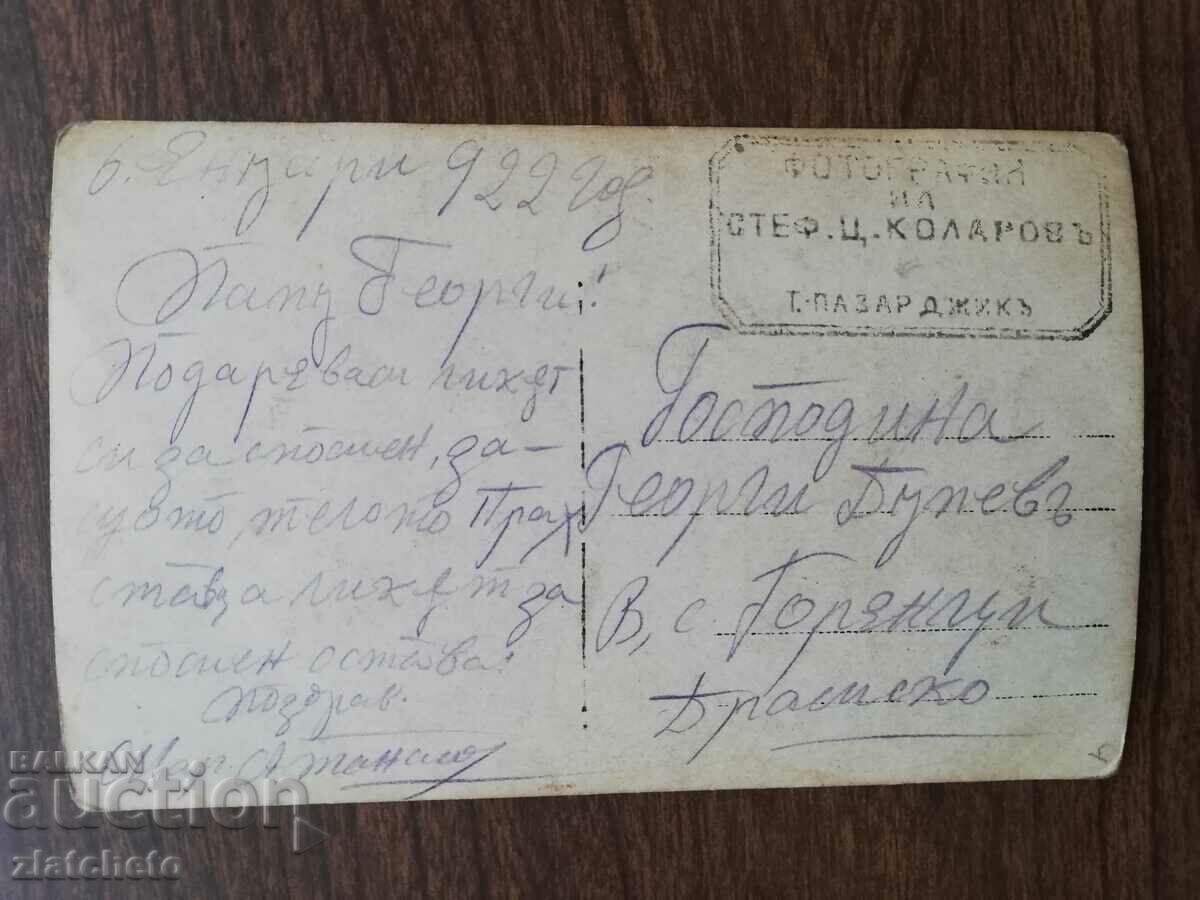 6. Януари 922 год.
Георги!
Подарявам ликът
си за спомен, за-
щото, тялото
става ликът за
спомен остава.
Поздрав.
Атанасов
ФОТОГРАФИЯ
НА
СТЕФ. Ц. КОЛАРОВЪ
Т.-ПАЗАРДЖИКЪ
Господина
Георги
В, с.
Драмско
BALKAN
auction
zlatcheto